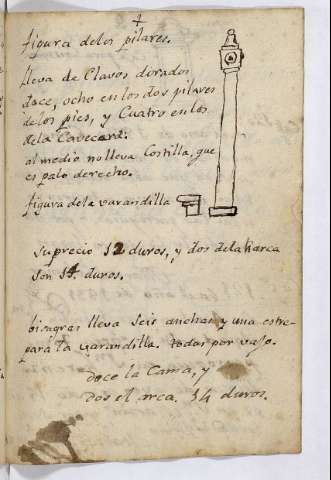 4
figura delos pilares.
lleva de Clavos dorados
doce, ocho en los dos pilares
de los pies, y Cuatro en los
dela Cavecera.
al medio no lleva Costilla, que
es palo derecho.
figura dela varandilla
su precio 12 duros, y dos dela harca
son 14. duros.
bisagras lleva seis anchas y una estre-
para la varandilla. todas por vajo.
doce la Cama, y
dos el arca. 14 duros.